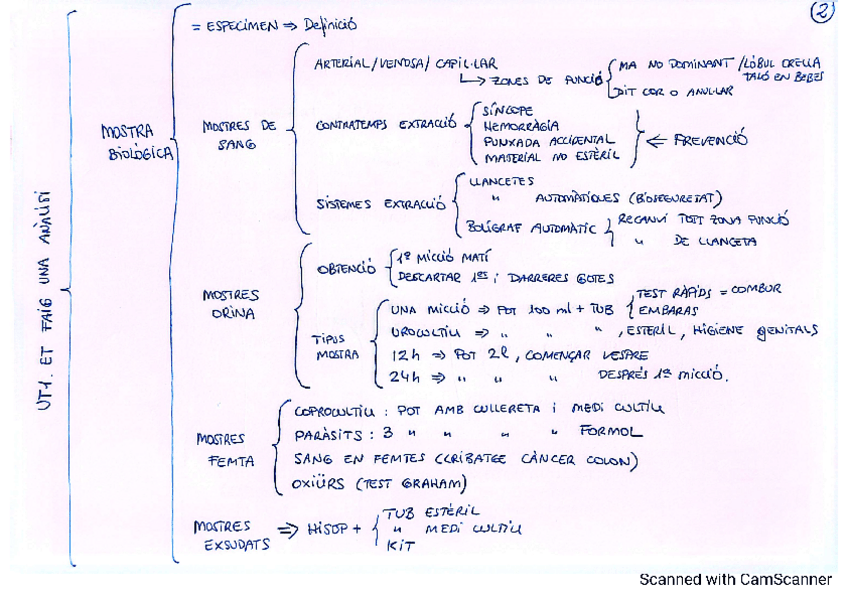 2
= ESPECIMEN ⇒ Definició
ARTERIAL/VENOSA/CAPIL·LAR
ZONES DE PUNCIÓ
MA NO DOMINANT / LÒBUL ORELLA
TALÓ EN BEBES
DIT COR O ANUL·LAR
MOSTRA
BIOLÒGICA
MOSTRES DE
SANG
CONTRATEMPS EXTRACCIÓ
SÍNCOPE
HEMORRÀGIA
PUNXADA ACCIDENTAL
MATERIAL NO ESTÈRIL
⇐ PREVENCIÓ
SISTEMES EXTRACCIÓ
LLANCETES
" AUTOMÀTIQUES (BIOSEGURETAT)
BOLÍGRAF AUTOMÀTIC
RECANVI TOT ZONA PUNCIÓ
" DE LLANCETA
UT1. ET FAIG UNA ANÀLISI
MOSTRES
ORINA
OBTENCIÓ
1ª MICCIÓ MATÍ
DESCARTAR 1ES i DARRERES GOTES
TIPUS
MOSTRA
UNA MICCIÓ ⇒ POT 100 ml + TUB
TEST RÀPIDS = COMBUR
EMBARAS
UROCULTIU ⇒ " " " , ESTERIL, HIGIENE GENITALS
12h ⇒ POT 2L, COMENÇAR VESPRE
24h ⇒ " " " DESPRÉS 1ª MICCIÓ.
MOSTRES
FEMTA
COPROCULTIU : POT AMB CULLERETA i MEDI CULTIU
PARÀSITS : 3 " " " " FORMOL
SANG EN FEMTES (CRIBATGE CÀNCER COLON)
OXIÜRS (TEST GRAHAM)
MOSTRES
EXSUDATS
⇒ HISOP +
TUB ESTÈRIL
" MEDI CULTIU
KIT
Scanned with CamScanner